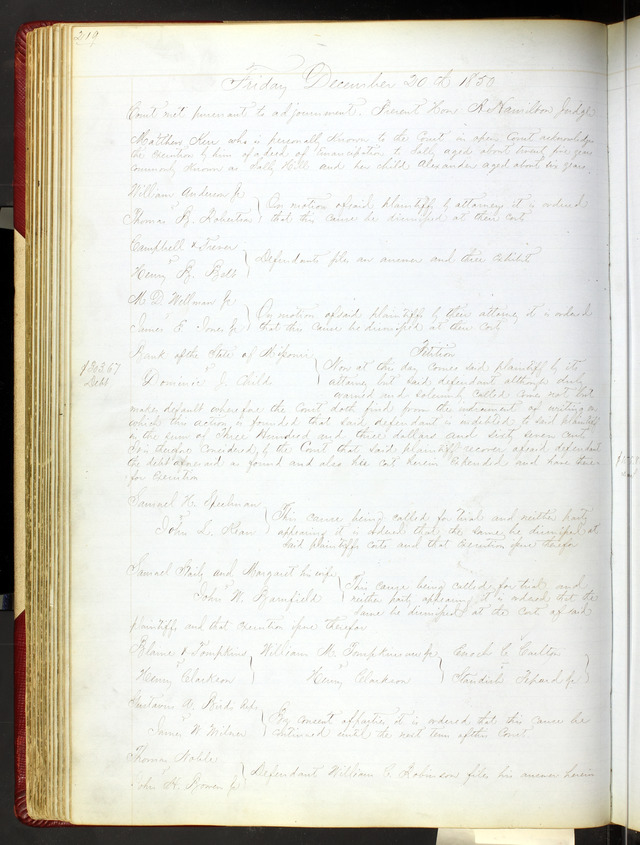 219
Friday December 20th 1850
Court met pursuant to adjournment. Present Hon A Hamilton Judge
Matthew Kerr who is personally known to the Court in open Court acknowledges
the execution by him of a deed of Emancipation to Sally aged about twenty five years
commonly known as Sally Hill and her child Alexander aged about six years.
William Anderson Jr
vs
Thomas B. Robertson
On motion of said plaintiff by attorney it is ordered
that this cause be dismissed at their cost
Campbell & Trevor
vs
Henry B. Belt
Defendant files an answer and three exhibits
M. D. Wellman Jr.
vs
James E. Jones Jr
On motion of said plaintiffs by their attorney it is ordered
that this cause be dismissed at their cost
Bank of the State of Missouri
vs
Domenic J. Child
Petition
$303.67
Debt
Now at this day comes said plaintiff by its
attorney but said defendant although duly
warned and solemnly called comes not but
make default wherefore the Court doth find from the instrument of writing on
which this action is founded that said defendant is indebted to said plaintiff
in the sum of Three Hundred and three dollars and sixty seven cents
It is therefore Considered by the Court that said plaintiff recover of said defendant
the debt aforesaid as found and also his cost herein Expended and have there
for Execution
Samuel H. Speelman
vs
John L. Kean
This cause being called for trial and neither party
appearing it is ordered that the same be dismissed at
said plaintiffs costs and that Execution issue therefor
Samuel Gaity and Margaret his wife
vs
John W. Barnfield
This cause being called for trial and
neither party appearing it is ordered that the
same be dismissed at the cost of said
plaintiffs and that execution issue therefor
Blaine & Tompkins William M. Tompkins Jr Enoch C Carlton
vs vs vs
Henry Clarkson Henry Clarkson Standish
Gustavus A. Bird
vs
James W. Milner
By consent of parties it is ordered that this cause be
continued until the next term of this Court
Thomas Noble
vs
John H. Bowen Jr
Defendant William C. Robinson files his answer herein